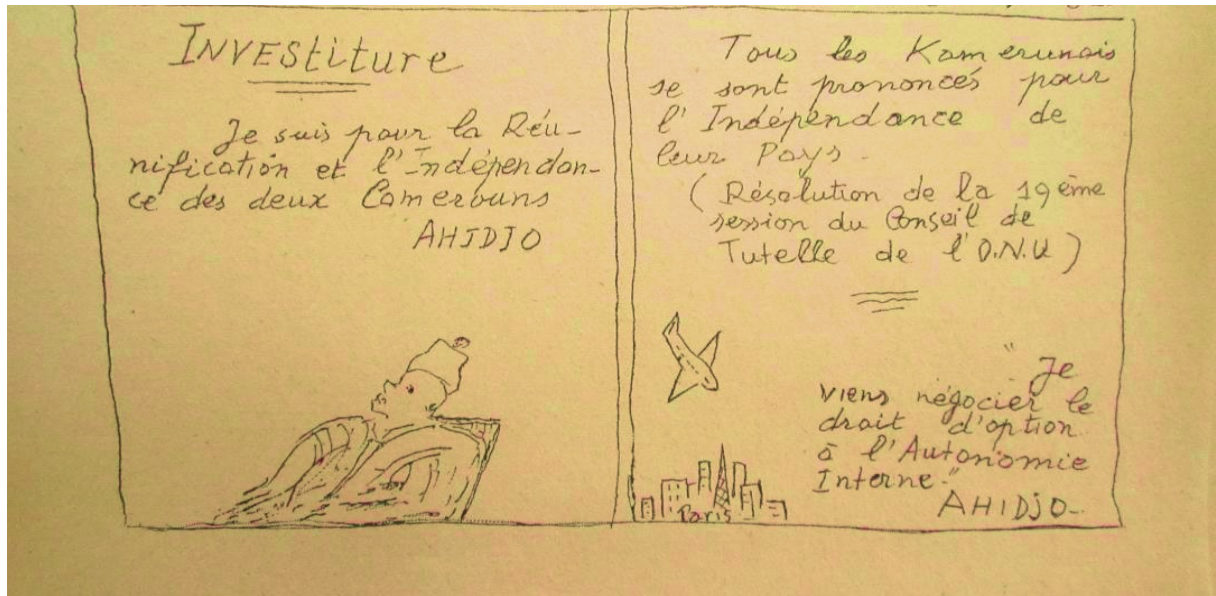 INVEStiture
Je suis pour la Réu-
nification et l'Indépendan-
ce des deux Camerouns
AHIDJO
Tous les Kamerunais
se sont prononcés pour
l'Indépendance de
leur Pays.
(Résolution de la 19ème
session du Conseil de
Tutelle de l'O.N.U)
"Je
viens négocier le
droit d'option
à l'Autonomie
Interne."
AHIDJO-
Paris